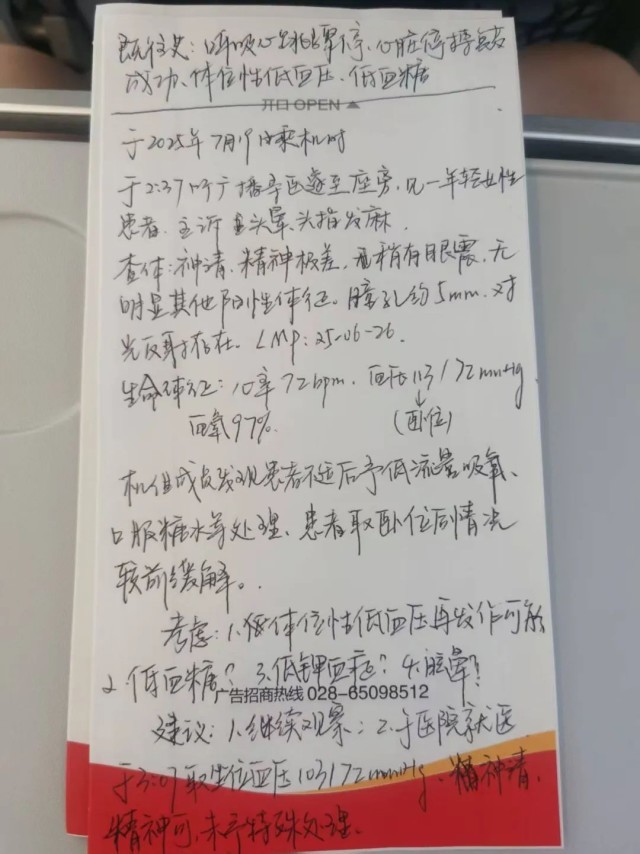 既往史：呼吸心跳骤停、心脏停搏复苏
成功、体位性低血压、低血糖
开口 OPEN
于2025年7月19日乘机时
于2:37听广播寻医遂至座旁，见一年轻女性
患者，主诉头晕、头指发麻。
查体：神清，精神极差，稍有眼震，无
明显其他阳性体征。瞳孔约5mm，对
光反射存在。LMP：25-06-26.
生命体征：心率72bpm，血压113/72mmHg，
血氧97%. (卧位)
机组成员发现患者不适后予低流量吸氧、
口服糖水等处理，患者取卧位后情况
较前缓解。
考虑：1.体位性低血压再发作可能
2.低血糖？3.低钾血症？4.晕？
广告招商热线 028-65098512
建议：1.继续观察；2.于医院就医
于3:07取坐位血压103/72mmHg、精神清，
精神可，未予特殊处理。